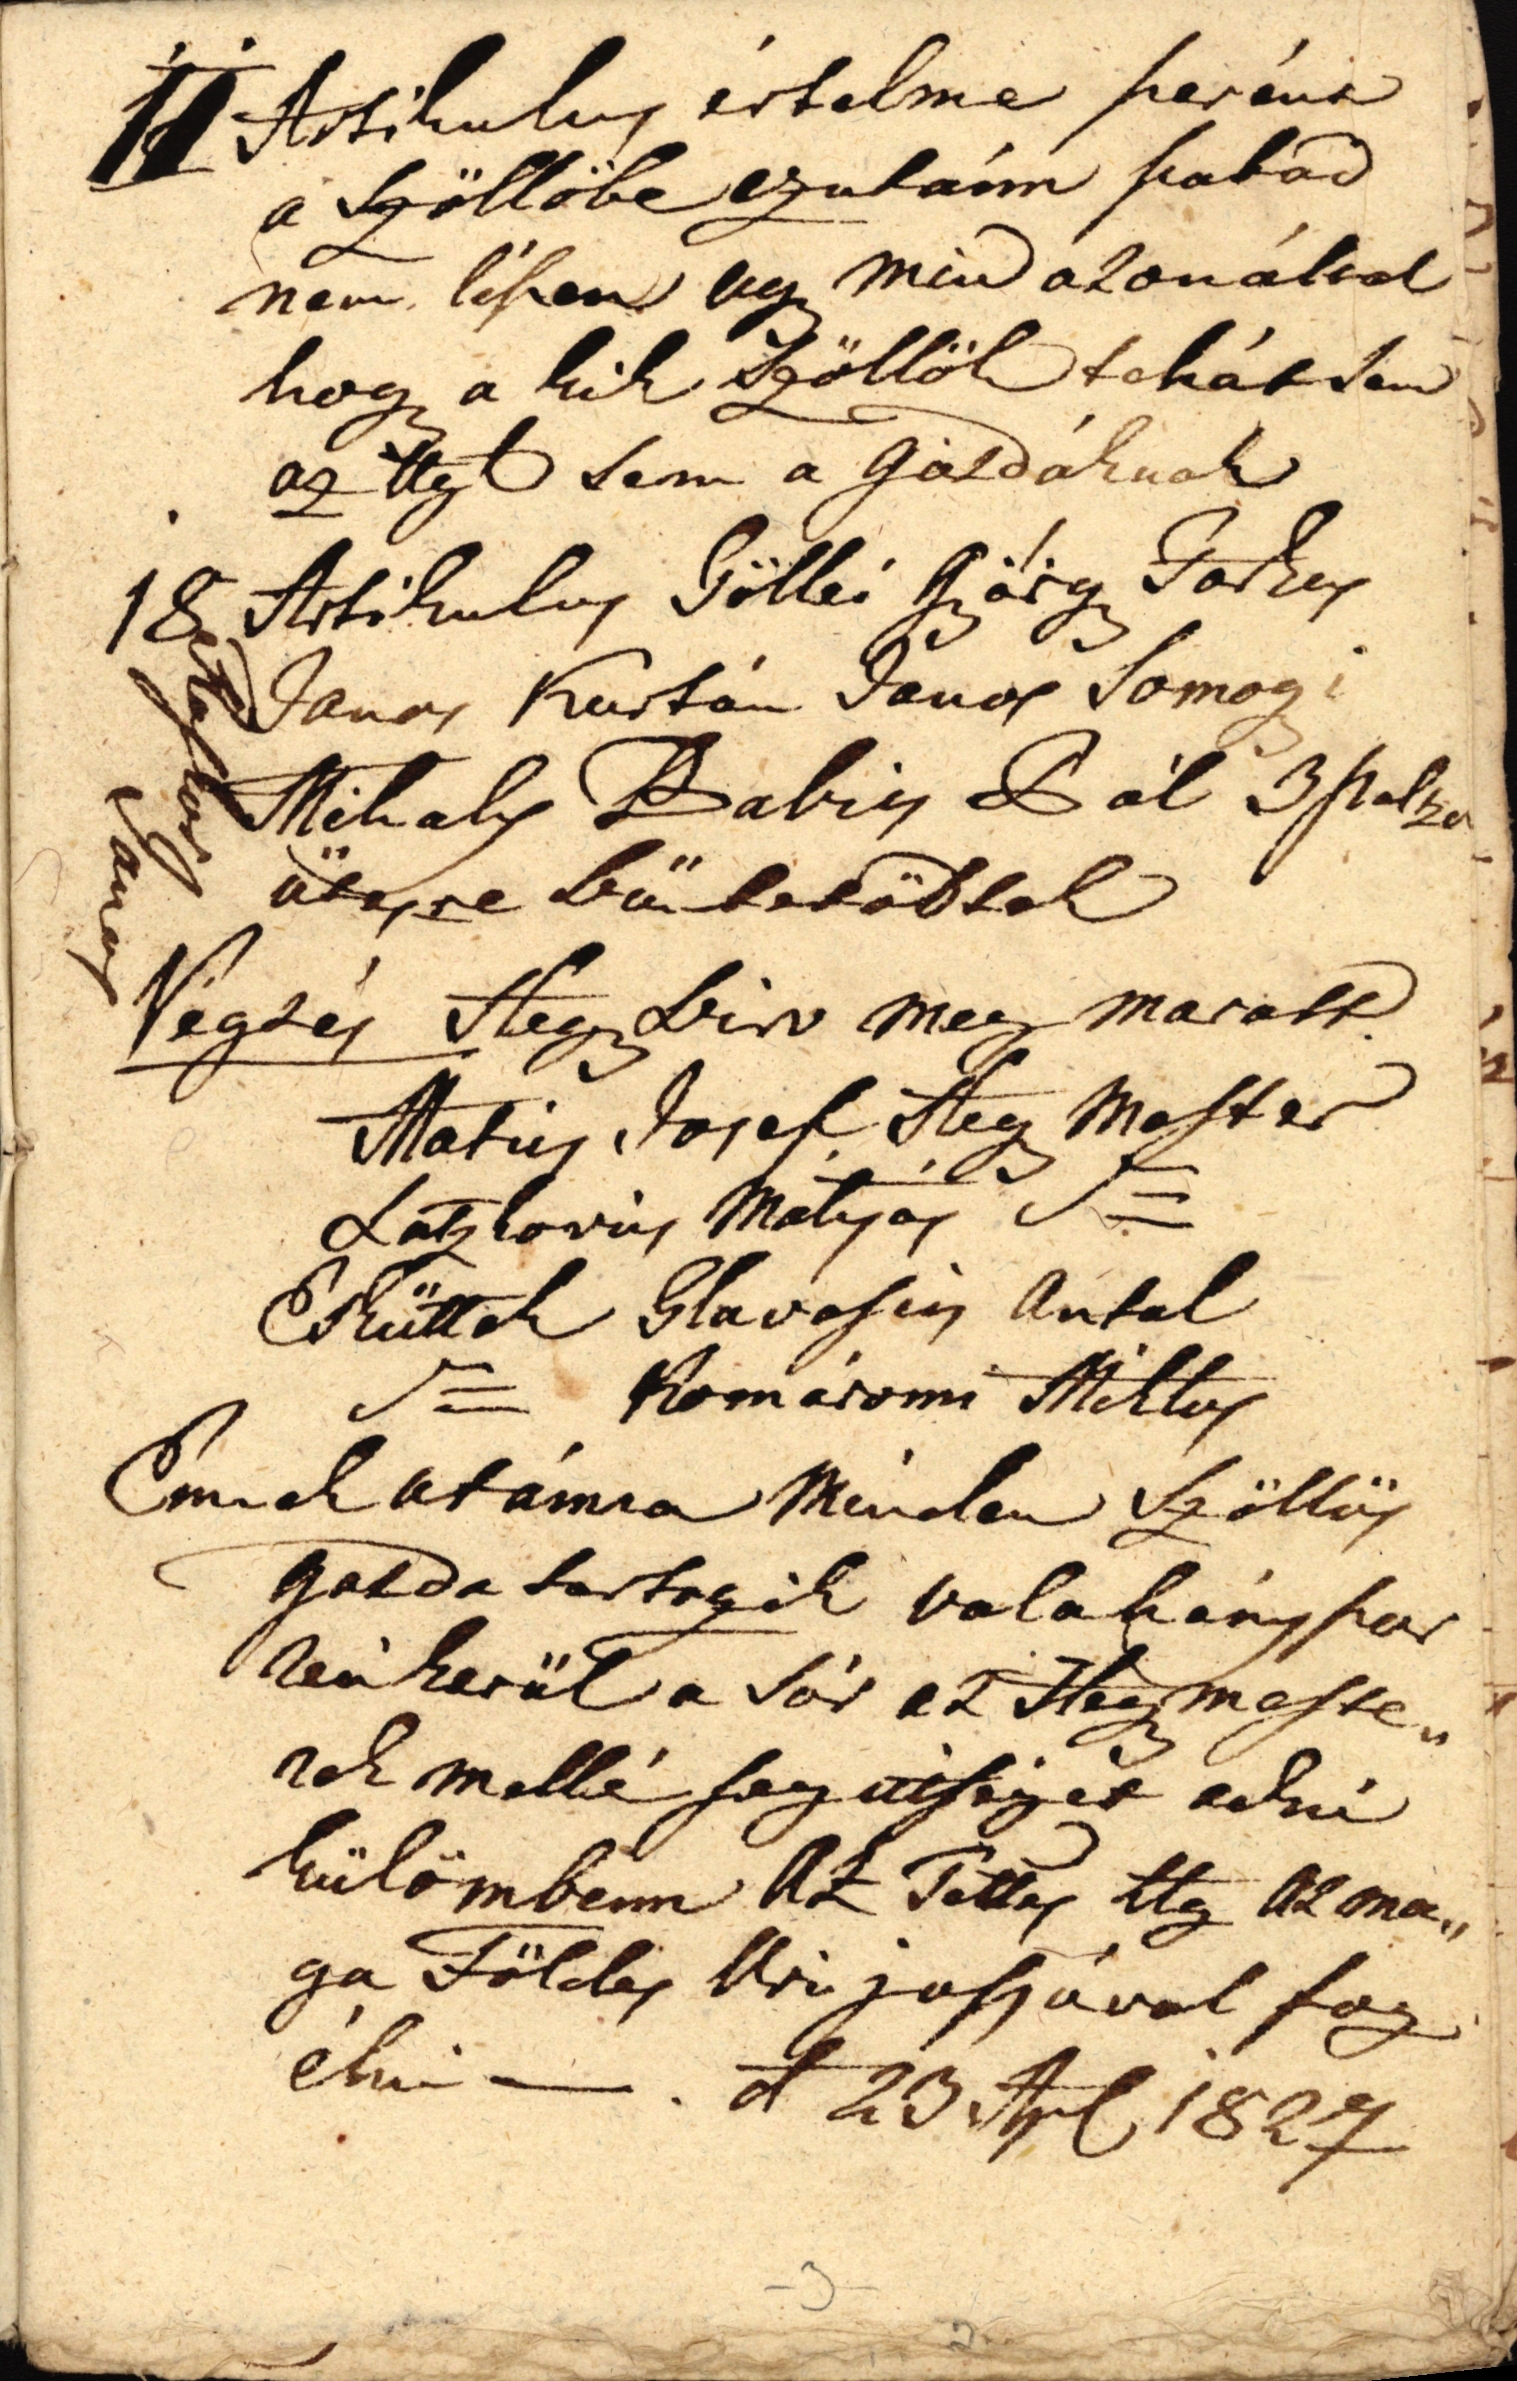 11 Artikulus értelme szerént
a Szőllőbe ezutánn szabad
nem lészen ugy mind azonáltal
hogy a kik Szőllök tehát sem
az Uyt sem a Gazdáknak
18 Artikulus Göllei György Farkas
Janos Kurtán Janos Somogyi
Mihaly Babics Pál 3 paltza
ütesre büntetődtek
Janos
Végzés Hegy biro meg maratt
Matics Josef Hegy Mester
Latzkovics Mátyás
Esküttek Glavosics Antal
Komáromi Miklos
Ennek utánna Minden Szőllős
gazda tartozik valahányszor
reá kerül a sór az Hegy meste„
rek mellé segittséget adni
külömbenn Az Tettes Uy az ma„
ga Földes Uri jussával fog
élni — . d 23 Apl 1827
-3-